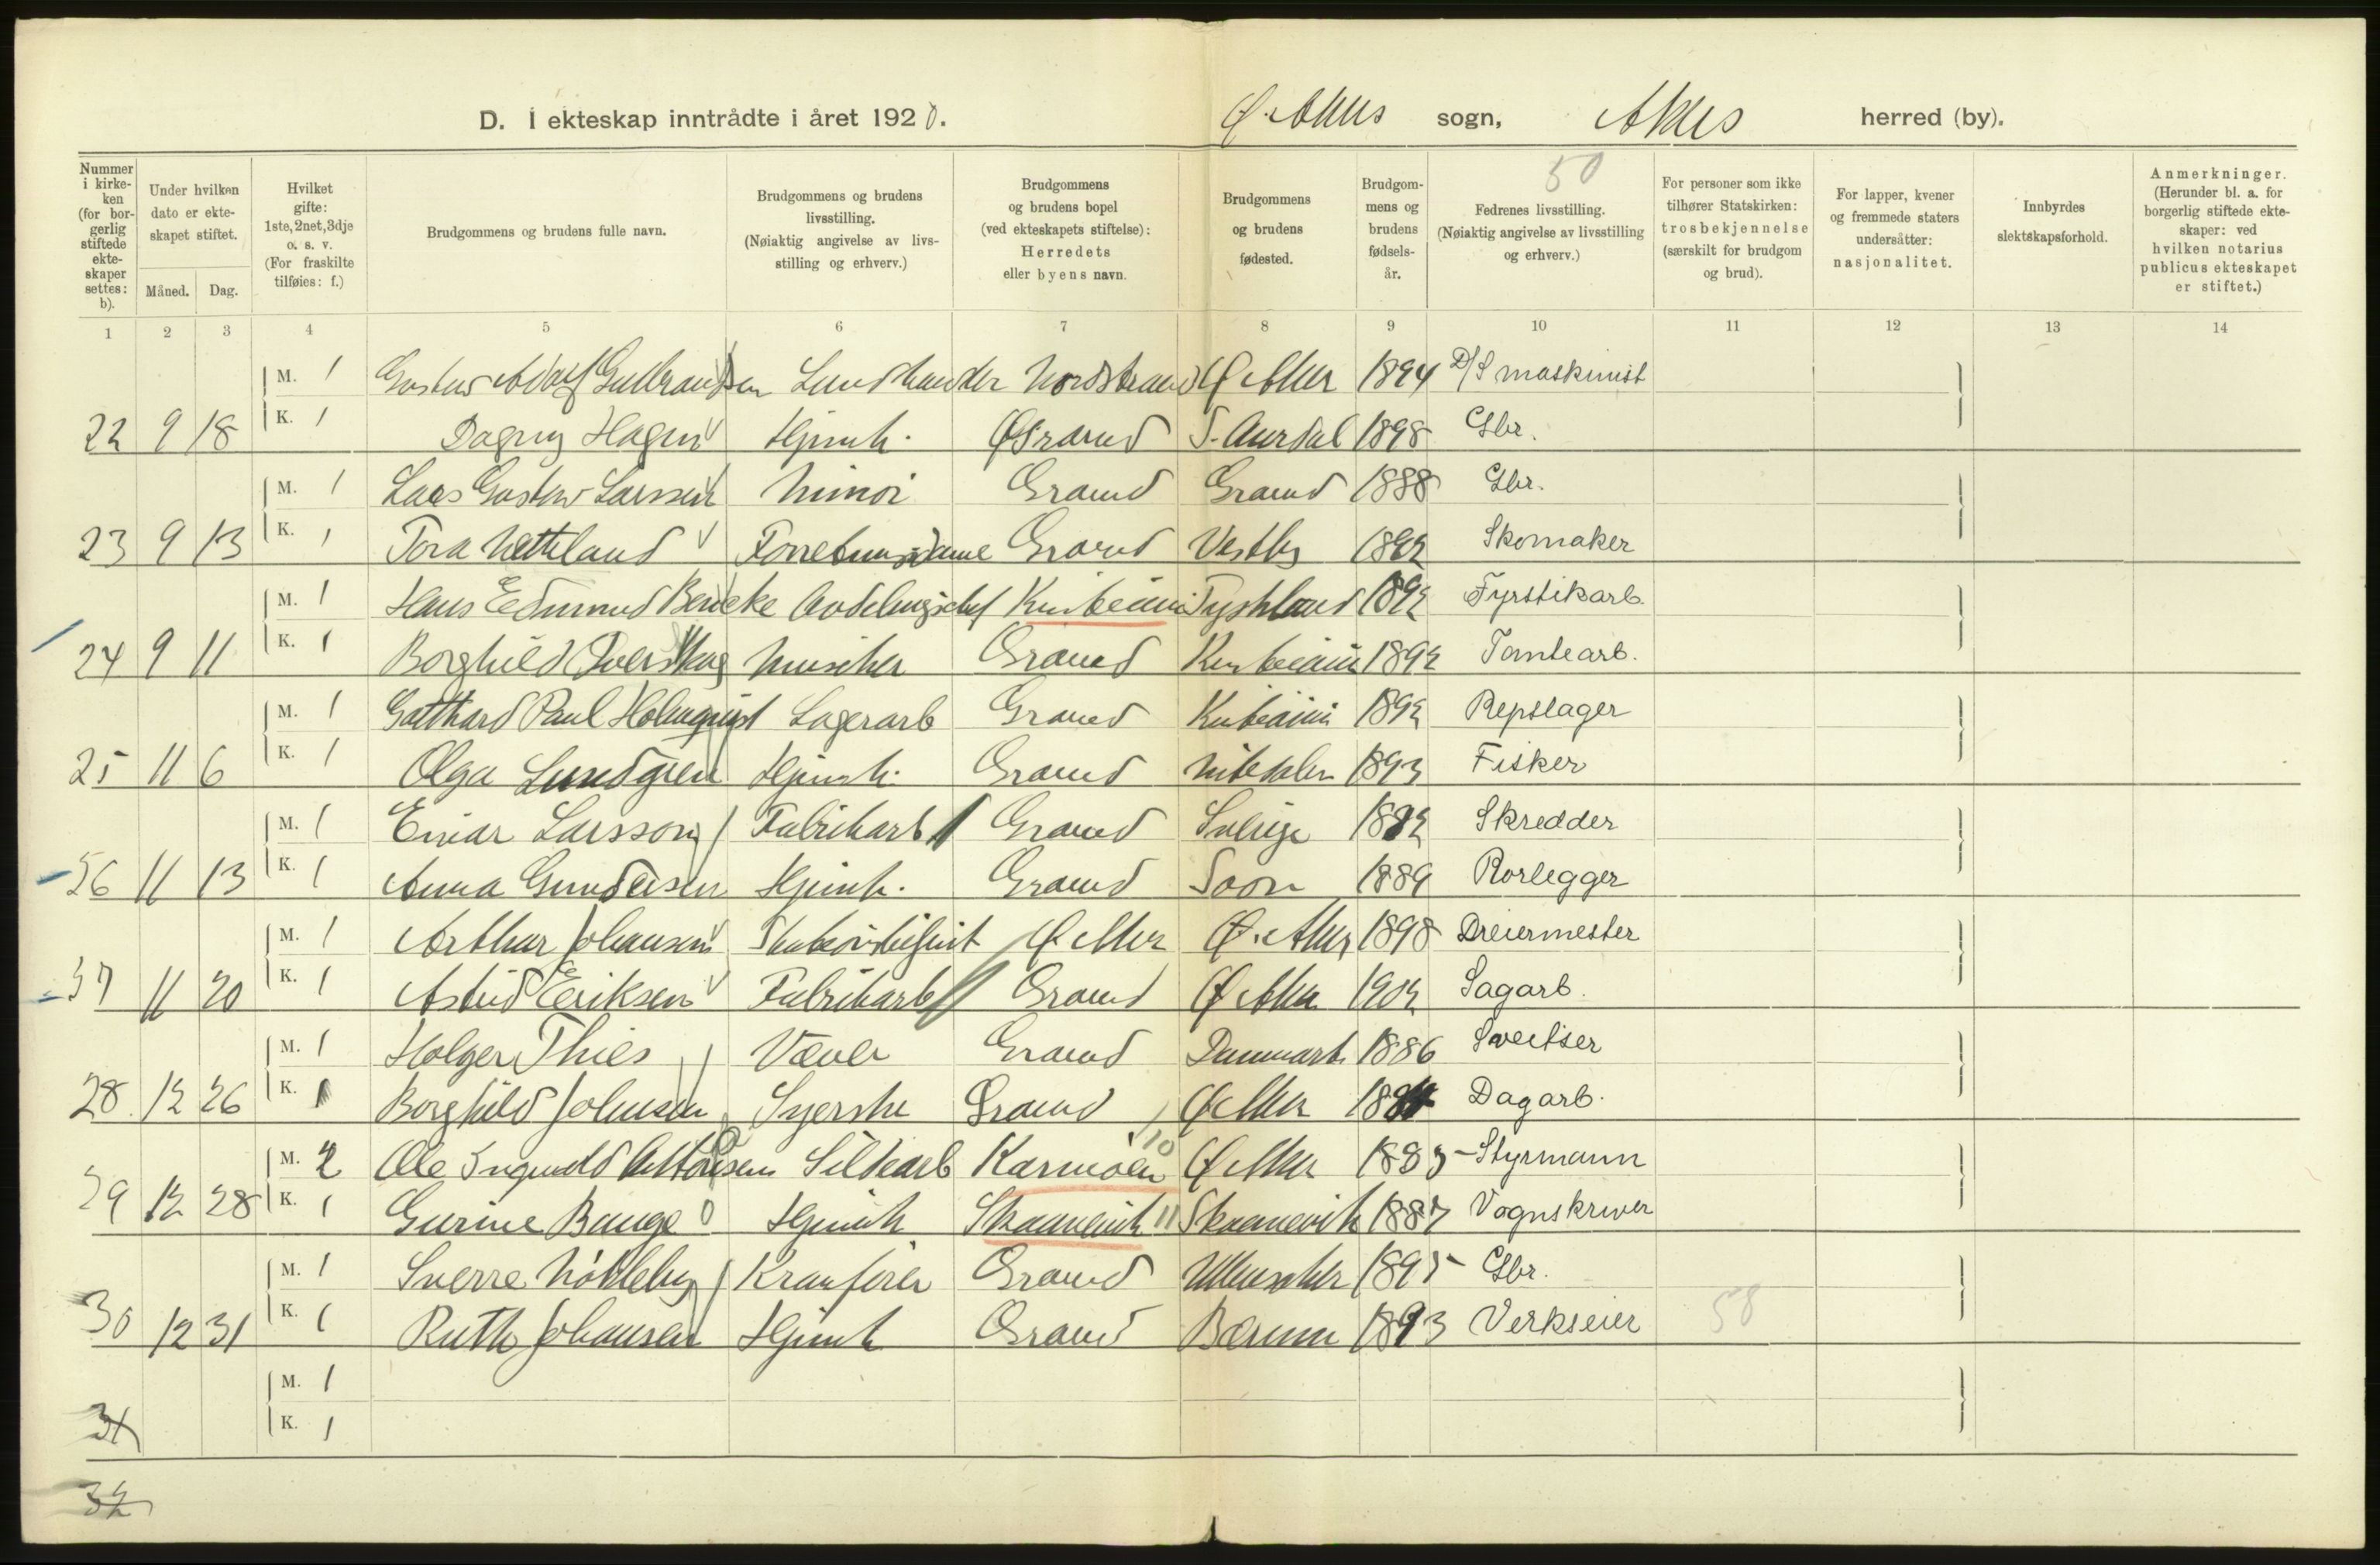 D. I ekteskap inntrådte i året 1920. Ø. Aker sogn, Aker herred (by).
Nummer i kirkeken (for borgerlig stiftede ekteskaper settes: b).
Under hvilken dato er ekteskapet stiftet.
Måned. Dag.
Hvilket gifte: 1ste, 2net, 3dje o. s. v. (For fraskilte tilføies: f.)
Brudgommens og brudens fulle navn.
Brudgommens og brudens livsstilling. (Nøiaktig angivelse av livsstilling og erhverv.)
Brudgommens og brudens bopel (ved ekteskapets stiftelse): Herredets eller byens navn.
Brudgommens og brudens fødested.
Brudgommens og brudens fødselsår.
50
Fedrenes livsstilling. (Nøiaktig angivelse av livsstilling og erhverv.)
For personer som ikke tilhører Statskirken: trosbekjennelse (særskilt for brudgom og brud).
For lapper, kvener og fremmede staters undersåtter: nasjonalitet.
Innbyrdes slektskapsforhold.
Anmerkninger. (Herunder bl. a. for borgerlig stiftede ekteskaper: ved hvilken notarius publicus ekteskapet er stiftet.)
1 2 3 4 5 6 7 8 9 10 11 12 13 14
M. 1 Gustav Adolf Gulbrandsen Nordstrand Ø Aker 1894 D/S maskinist
22 9 18 K. 1 Dagny Hagen Hjemh. Grorud S. Aurdal 1898 Gbr.
M. 1 Lars Gustav Larssen Grorud Grorud 1888 Gbr.
23 9 13 K. 1 Tora Grorud Vestby Skomaker
M. 1 Hans Edmund Avdelingschef Kristiania Tyskland 1892 Fyrstikarb.
24 9 11 K. 1 Borghild Grorud Kristiania 1892 Tomtearb.
M. 1 Gotthard Paul Holmquist Lagerarb Grorud Kristiania 1892 Repslager
25 11 6 K. 1 Olga Lundgren Hjemh. Grorud Nitedalen 1893 Fisker
M. 1 Einar Larsson Fabrikarb Grorud Sverige Skredder
26 11 13 K. 1 Anna Gundersen Hjemh. Grorud Soon 1889 Rørlegger
M. 1 Arthur Johansen Ø. Aker Ø. Aker 1898 Dreiermester
27 11 20 K. 1 Astrid Eriksen Fabrikarb Grorud Ø Aker 1902 Sagarb.
M. 1 Holger Thies Væver Grorud Danmark 1886 Sveitser
28 12 26 K. 1 Borghild Johnsen Syerske Grorud Ø Aker Dagarb.
M. 2 Ole Ingvald Sildearb Karmøen 10 Ø Aker 1885 Styrmann
29 12 28 K. 1 Gurine Bauge Hjemh Skaanevik 11 Skaanevik 1887 Vognskriver
M. 1 Sverre Nökleby Kranfører Grorud Ullensaker 1895 Gbr.
30 12 31 K. 1 Ruth Johansen Hjemh Grorud Bærum 1893 Verkseier 58
M. 1
31 K. 1
32